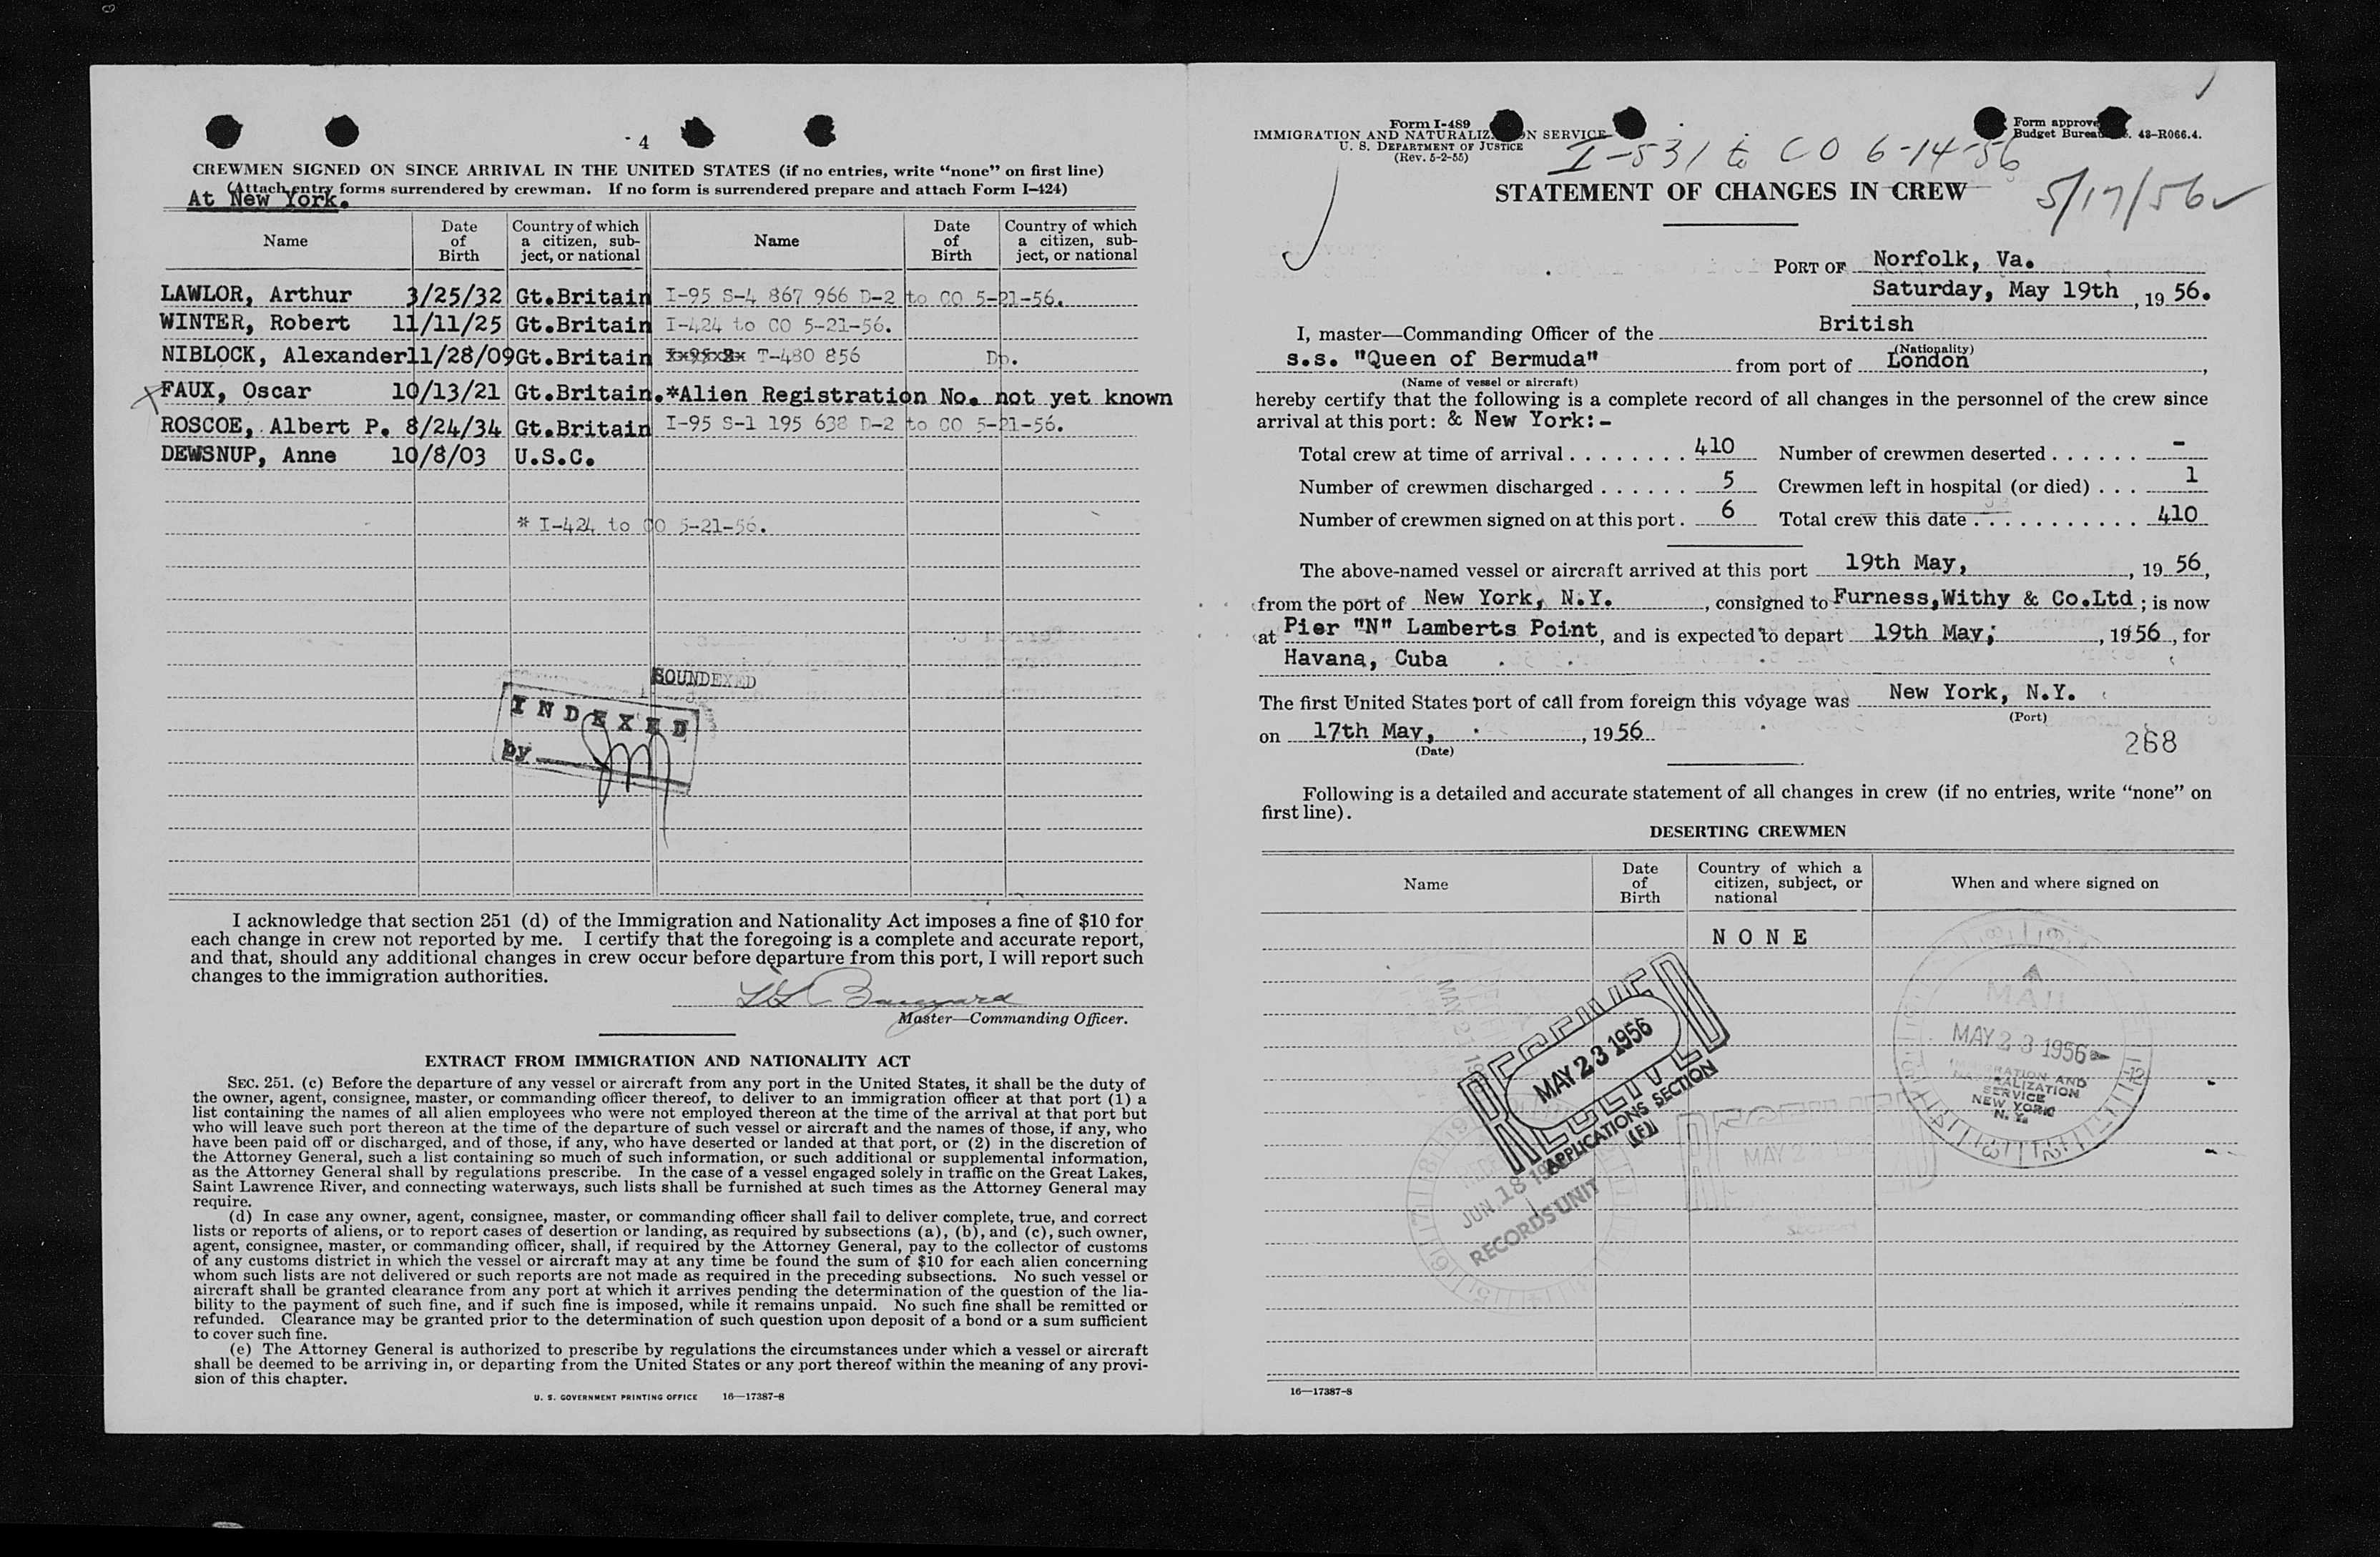 - 4
CREWMEN SIGNED ON SINCE ARRIVAL IN THE UNITED STATES (if no entries, write “none” on first line)
(Attach entry forms surrendered by crewman. If no form is surrendered prepare and attach Form I-424)
At New York.
Name Date of Birth Country of which a citizen, subject, or national Name Date of Birth Country of which a citizen, subject, or national
LAWLOR, Arthur 3/25/32 Gt.Britain I-95 S-4 867 966 D-2 to CO 5-21-56.
WINTER, Robert 11/11/25 Gt.Britain I-424 to CO 5-21-56.
NIBLOCK, Alexander 11/28/09 Gt.Britain T-480 856 Do.
FAUX, Oscar 10/13/21 Gt.Britain.*Alien Registration No. not yet known
ROSCOE, Albert P. 8/24/34 Gt.Britain I-95 S-1 195 638 D-2 to CO 5-21-56.
DEWSNUP, Anne 10/8/03 U.S.C.
* I-424 to CO 5-21-56.
SOUNDEXED
INDEXED
by
I acknowledge that section 251 (d) of the Immigration and Nationality Act imposes a fine of $10 for
each change in crew not reported by me. I certify that the foregoing is a complete and accurate report,
and that, should any additional changes in crew occur before departure from this port, I will report such
changes to the immigration authorities.
Master—Commanding Officer.
EXTRACT FROM IMMIGRATION AND NATIONALITY ACT
SEC. 251. (c) Before the departure of any vessel or aircraft from any port in the United States, it shall be the duty of
the owner, agent, consignee, master, or commanding officer thereof, to deliver to an immigration officer at that port (1) a
list containing the names of all alien employees who were not employed thereon at the time of the arrival at that port but
who will leave such port thereon at the time of the departure of such vessel or aircraft and the names of those, if any, who
have been paid off or discharged, and of those, if any, who have deserted or landed at that port, or (2) in the discretion of
the Attorney General, such a list containing so much of such information, or such additional or supplemental information,
as the Attorney General shall by regulations prescribe. In the case of a vessel engaged solely in traffic on the Great Lakes,
Saint Lawrence River, and connecting waterways, such lists shall be furnished at such times as the Attorney General may
require.
(d) In case any owner, agent, consignee, master, or commanding officer shall fail to deliver complete, true, and correct
lists or reports of aliens, or to report cases of desertion or landing, as required by subsections (a), (b), and (c), such owner,
agent, consignee, master, or commanding officer, shall, if required by the Attorney General, pay to the collector of customs
of any customs district in which the vessel or aircraft may at any time be found the sum of $10 for each alien concerning
whom such lists are not delivered or such reports are not made as required in the preceding subsections. No such vessel or
aircraft shall be granted clearance from any port at which it arrives pending the determination of the question of the lia-
bility to the payment of such fine, and if such fine is imposed, while it remains unpaid. No such fine shall be remitted or
refunded. Clearance may be granted prior to the determination of such question upon deposit of a bond or a sum sufficient
to cover such fine.
(e) The Attorney General is authorized to prescribe by regulations the circumstances under which a vessel or aircraft
shall be deemed to be arriving in, or departing from the United States or any port thereof within the meaning of any provi-
sion of this chapter.
U. S. GOVERNMENT PRINTING OFFICE 16—17387-8
Form I-489
IMMIGRATION AND NATURALIZ N SERVICE
U. S. DEPARTMENT OF JUSTICE
(Rev. 5-2-55)
Form approve
Budget Burea . 43-R066.4.
I-531 to CO 6-14-56
STATEMENT OF CHANGES IN CREW
5/17/56
PORT OF Norfolk, Va.
Saturday, May 19th, 19 56.
I, master—Commanding Officer of the British
(Nationality)
s.s. "Queen of Bermuda" from port of London,
(Name of vessel or aircraft)
hereby certify that the following is a complete record of all changes in the personnel of the crew since
arrival at this port: & New York:-
Total crew at time of arrival . . . . . . . . 410 Number of crewmen deserted . . . . . . -
Number of crewmen discharged . . . . . . 5 Crewmen left in hospital (or died) . . . 1
Number of crewmen signed on at this port . 6 Total crew this date . . . . . . . . . . . 410
The above-named vessel or aircraft arrived at this port 19th May, , 19 56,
from the port of New York, N.Y. , consigned to Furness,Withy & Co.Ltd ; is now
at Pier "N" Lamberts Point, and is expected to depart 19th May; , 1956 , for
Havana, Cuba
The first United States port of call from foreign this voyage was New York, N.Y.
(Port)
on 17th May, , 1956
(Date)
268
Following is a detailed and accurate statement of all changes in crew (if no entries, write “none” on
first line).
DESERTING CREWMEN
Name Date of Birth Country of which a citizen, subject, or national When and where signed on
N O N E
RECEIVED
MAY 23 1956
APPLICATIONS SECTION
(F)
MAIL
MAY 23 1956
IMMIGRATION AND
NATURALIZATION
SERVICE
NEW YORK
N. Y.
JUN 18
RECORDS UNIT
16—17387-8